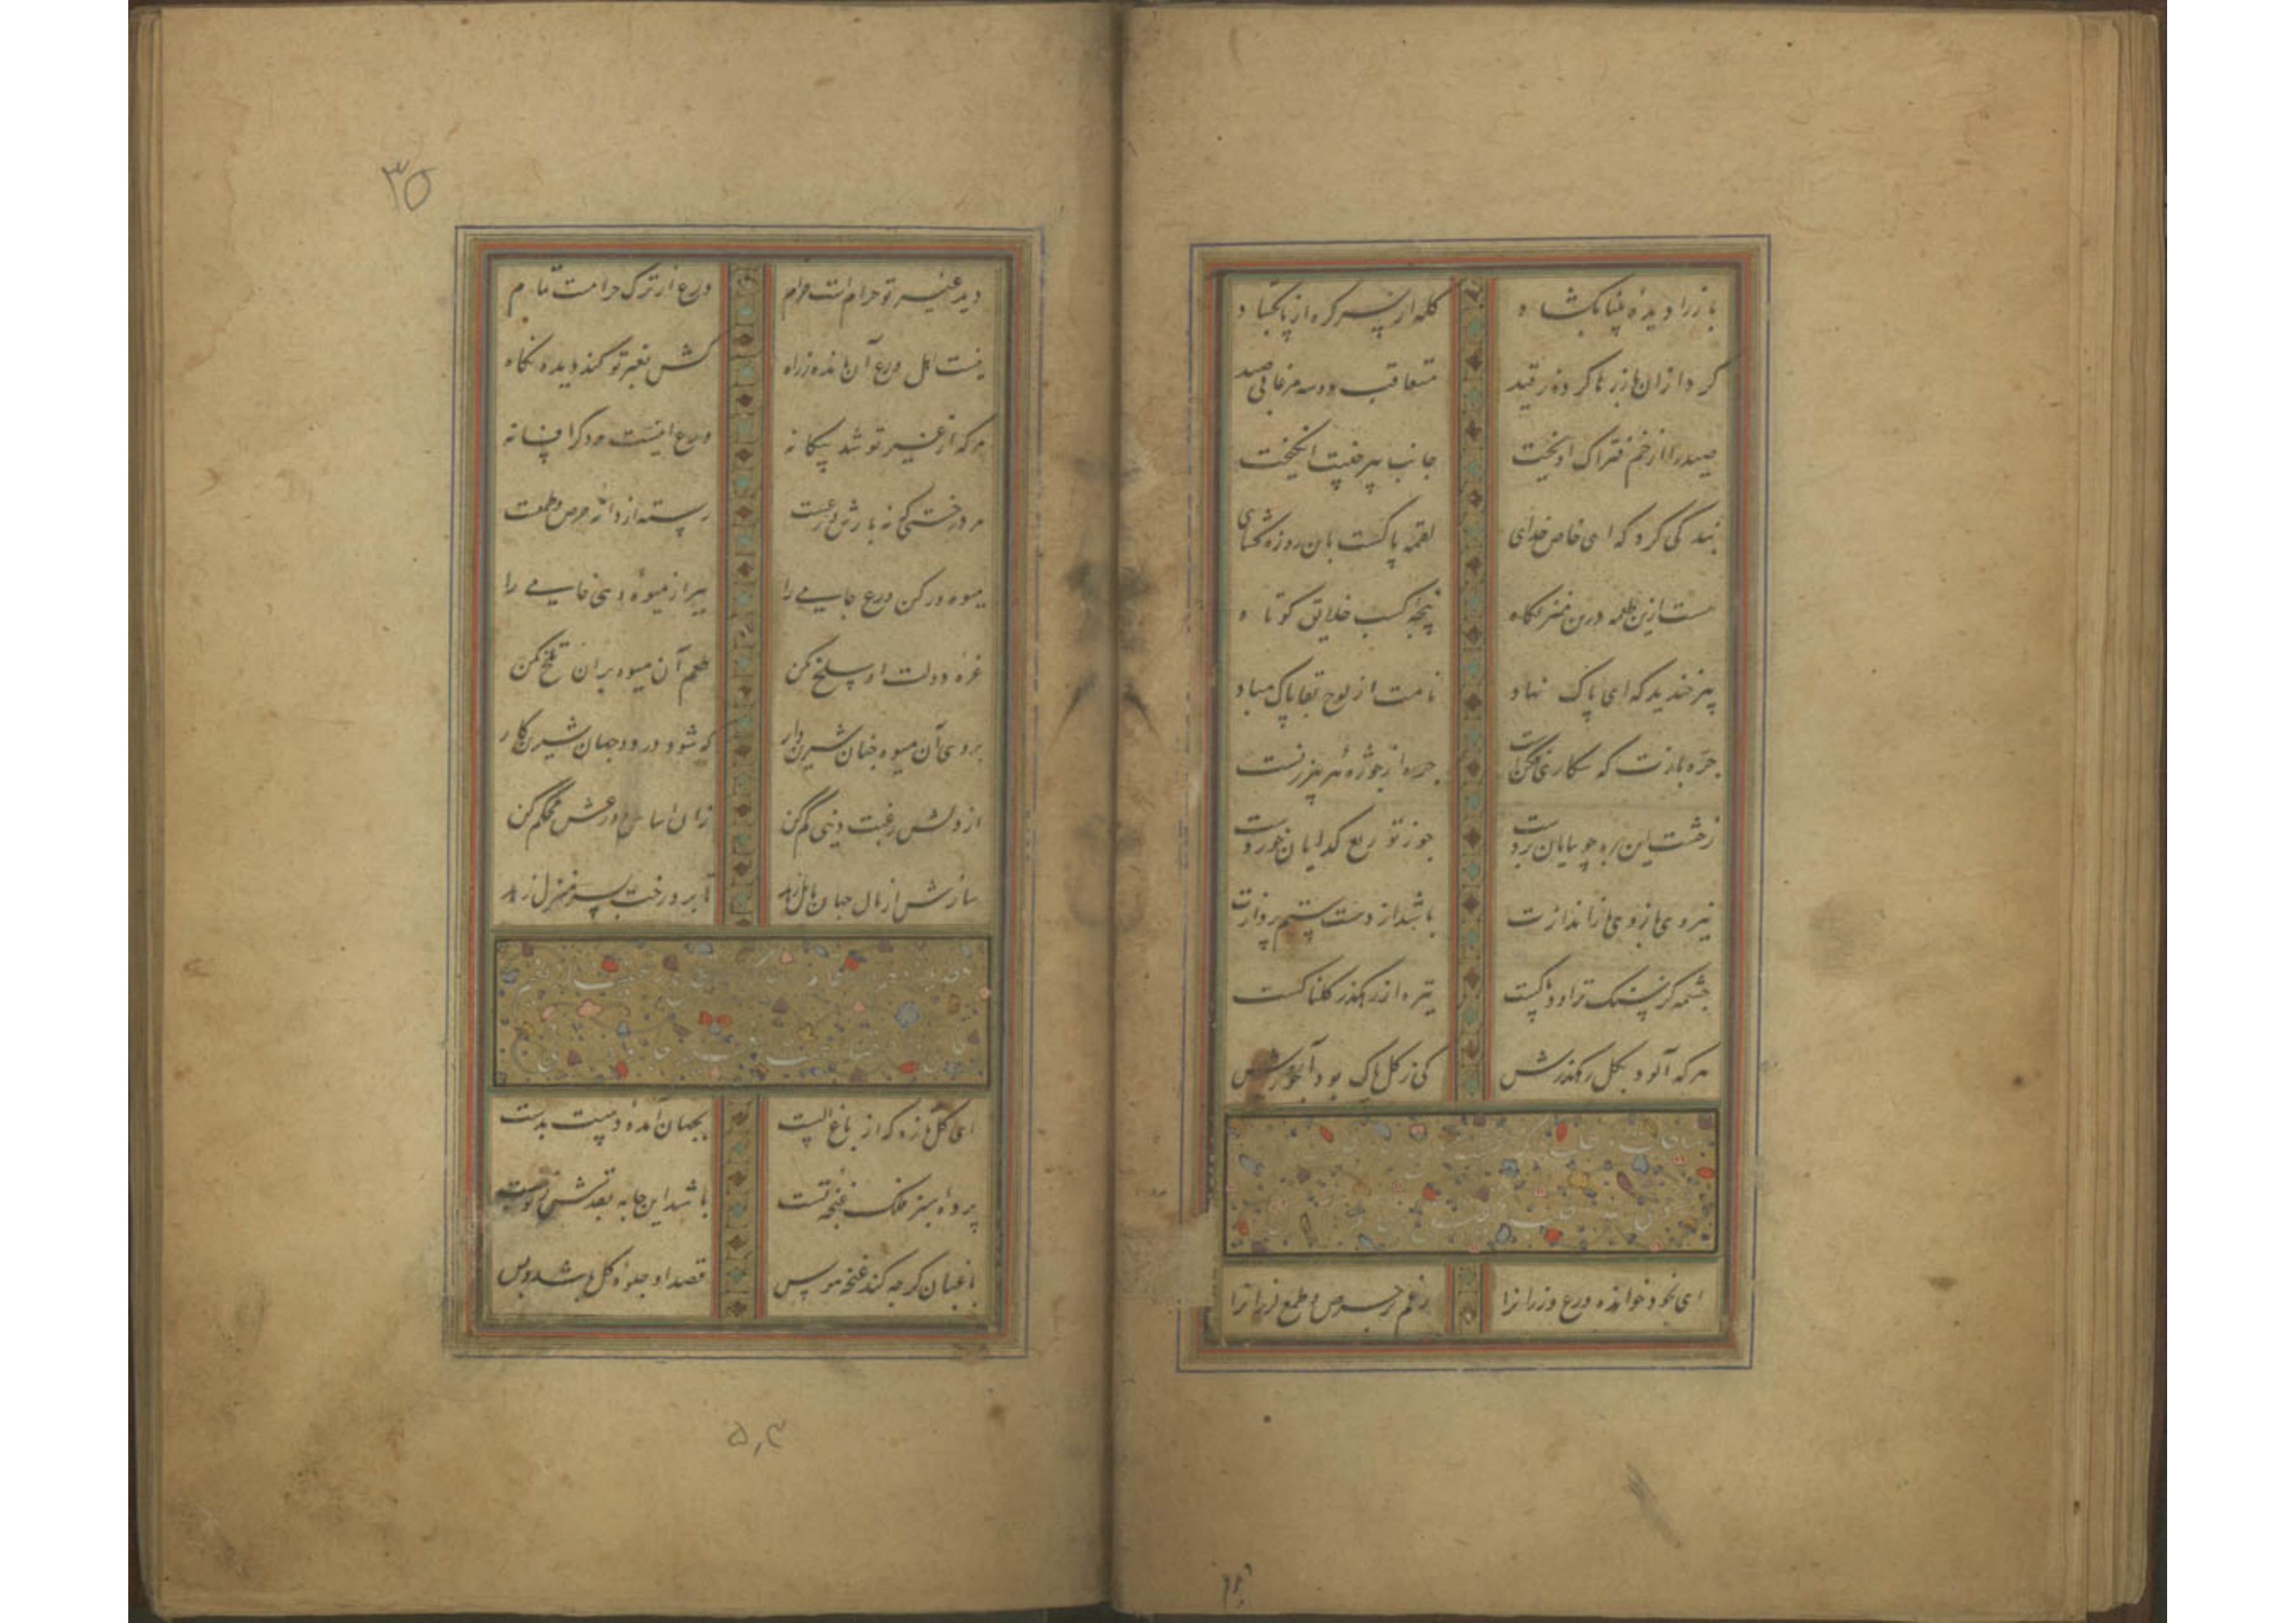 باز را دیده بینا بگشاد کله از سر گره از پا بگشاد
کرد از ان باز رها کرده ز قید متعاقب دو سه مرغابی صید
صید را از خم فتراک آویخت جانب پیر جنیبت انگیخت
بندگی کرد که ای خاص خدای لقمه پاکست بان روزه گشای
هست ازین طعمه درین منزلگاه پنجه کسب خلایق کوتاه
پیر خندید که ای پاک نهاد نامت از لوح بقا پاک مباد
جره بازت که شکاری فکنست جره از جوژه هر پیرزنست
رخشت این ره چو بپایان بردست جو ز توزیع گدایان خوردست
نیروی بازوی بازاندازت باشد از دست ستم پردازت
چشمه کز سنگ تراود پاکست تیره از رهگذر گلناکست
هر که آلود بگل رهگذرش کی ز گل پاک بود آبخورش
ای بخود خوانده ورع ورزانرا رغم حرص و طمع
۳۵
دید غیر تو حرام است حرام ورع از ترک حرامت تمام
نیست اهل ورع آن مانده ز راه کش بغیر تو کند دیده نگاه
هر که از غیر تو شد بیگانه ورع اینست و دگر افسانه
هر درختی که نه بارش ورعست رسته از دانه حرص و طمعست
میوه ور کن ورع جامی را ببر از میوه وی خامی را
غره دولت او سلخ مکن طعم آن میوه بر آن تلخ مکن
بروی آن میوه چنان شیرین دار که شود در دو جهان شیرین کار
از دلش رغبت دنیی کم کن زان اساس ورعش محکم کن
سازش از مال جهان زهد تا برد رخت بسر منزل زهد
ای گل تازه که از باغ الست بجهان آمده دست بدست
پرده سبز فلک غنچه تست باشد این
باغبان گر چه کند غنچه هوس قصد او جلوه گل باشد و بس